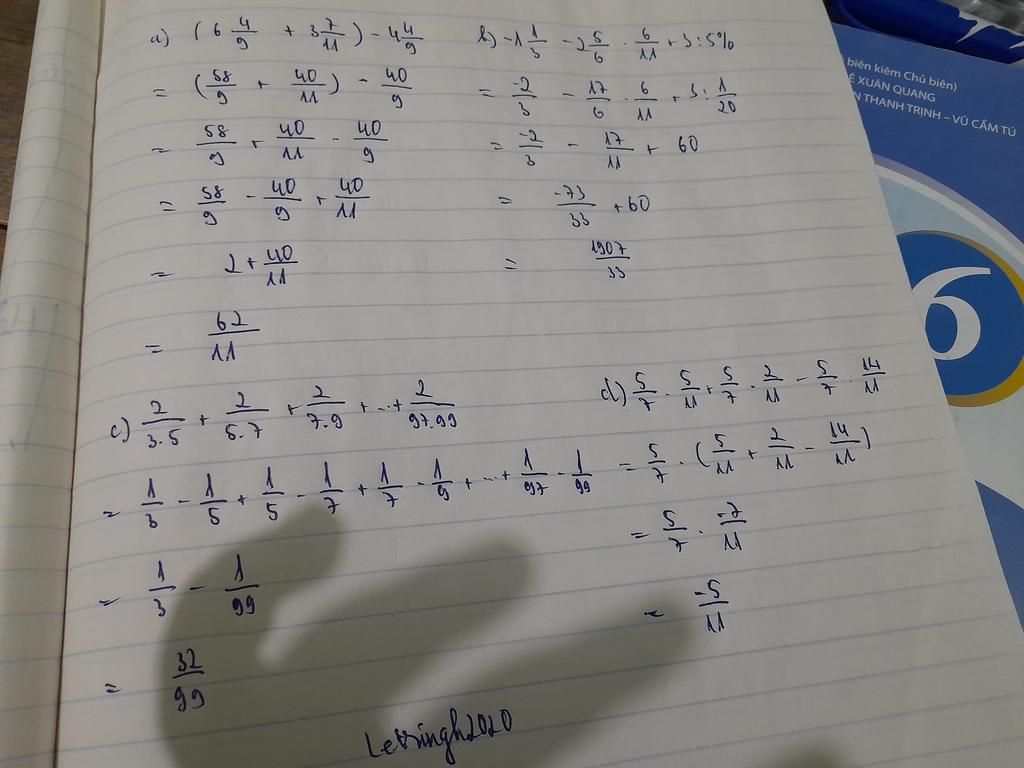 a) (6 4/9 + 3 7/11) - 4 4/9
= (58/9 + 40/11) - 40/9
= 58/9 + 40/11 - 40/9
= 58/9 - 40/9 + 40/11
= 2 + 40/11
= 62/11
b) -1 1/3 - 2 5/6 . 6/11 + 3 : 5%
= -2/3 - 17/6 . 6/11 + 3 : 1/20
= -2/3 - 17/11 + 60
= -73/33 + 60
= 1907/33
c) 2/3.5 + 2/5.7 + 2/7.9 + ... + 2/97.99
= 1/3 - 1/5 + 1/5 - 1/7 + 1/7 - 1/9 + ... + 1/97 - 1/99
= 1/3 - 1/99
= 32/99
d) 5/7 . 5/11 + 5/7 . 2/11 - 5/7 . 14/11
= 5/7 . (5/11 + 2/11 - 14/11)
= 5/7 . -7/11
= -5/11
biên kiêm Chủ biên)
XUÂN QUANG
THANH TRỊNH – VŨ CẨM TÚ
6